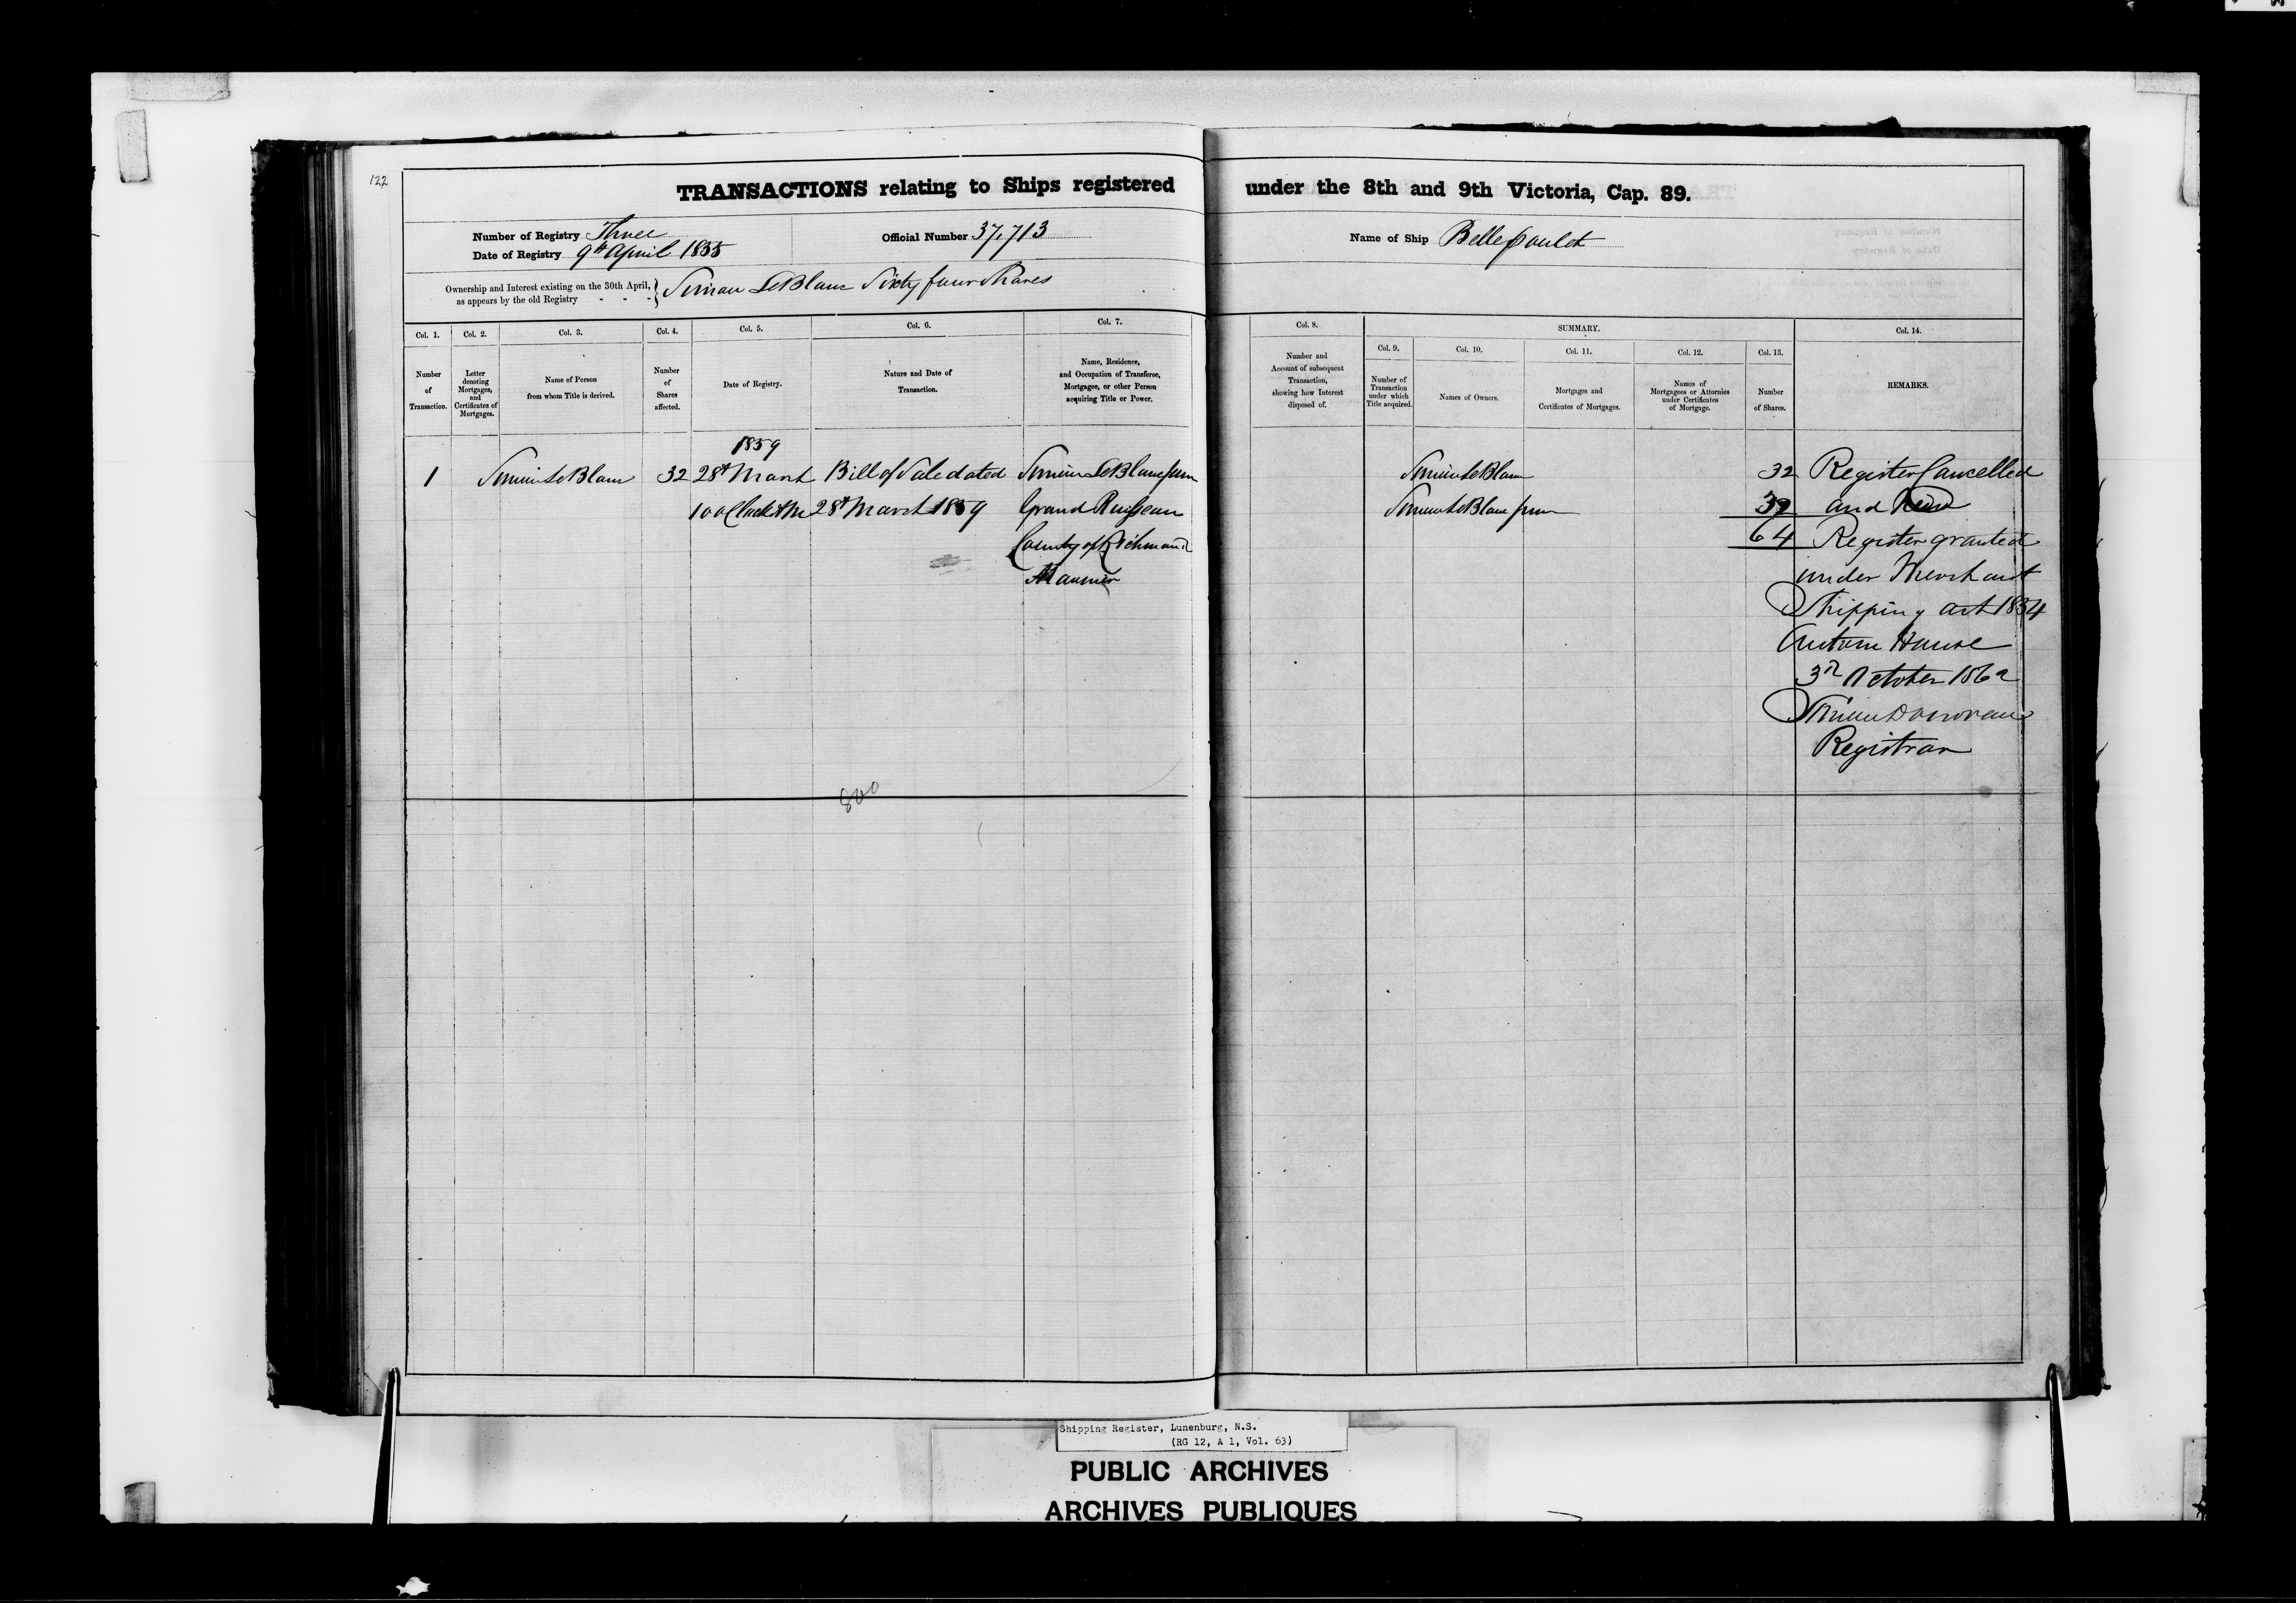 122
TRANSACTIONS relating to Ships registered under the 8th and 9th Victoria, Cap. 89.
Number of Registry Three
Official Number 37,713
Name of Ship Belle Poulet
Date of Registry 9th April 1855
Ownership and Interest existing on the 30th April, as appears by the old Registry - - - } Simon LeBlanc Sixty four Shares
Col. 1. Col. 2. Col. 3. Col. 4. Col. 5. Col. 6. Col. 7. Col. 8. SUMMARY. Col. 14.
Col. 9. Col. 10. Col. 11. Col. 12. Col. 13.
Number of Transaction.
Letter denoting Mortgages, and Certificates of Mortgages.
Name of Person from whom Title is derived.
Number of Shares affected.
Date of Registry.
Nature and Date of Transaction.
Name, Residence, and Occupation of Transferee, Mortgagee, or other Person acquiring Title or Power.
Number and Account of subsequent Transaction, showing how Interest disposed of.
Number of Transaction under which Title acquired.
Names of Owners.
Mortgages and Certificates of Mortgages.
Names of Mortgagees or Attornies under Certificates of Mortgage.
Number of Shares.
REMARKS.
1859
1 Simon LeBlanc 32 28th March Bill of Sale dated Simon LeBlanc Junr
10 oClock AM 28th March 1859 Grand Ruisseau
County of Richmond
Mariner
Simon LeBlanc 32
Simon LeBlanc Junr 32
64
Register Cancelled
and New
Register granted
under Merchant
Shipping Act 1854
Custom House
3rd October 1862
Donovan
Registrar
800
Shipping Register, Lunenburg, N.S.
(RG 12, A 1, Vol. 63)
PUBLIC ARCHIVES
ARCHIVES PUBLIQUES